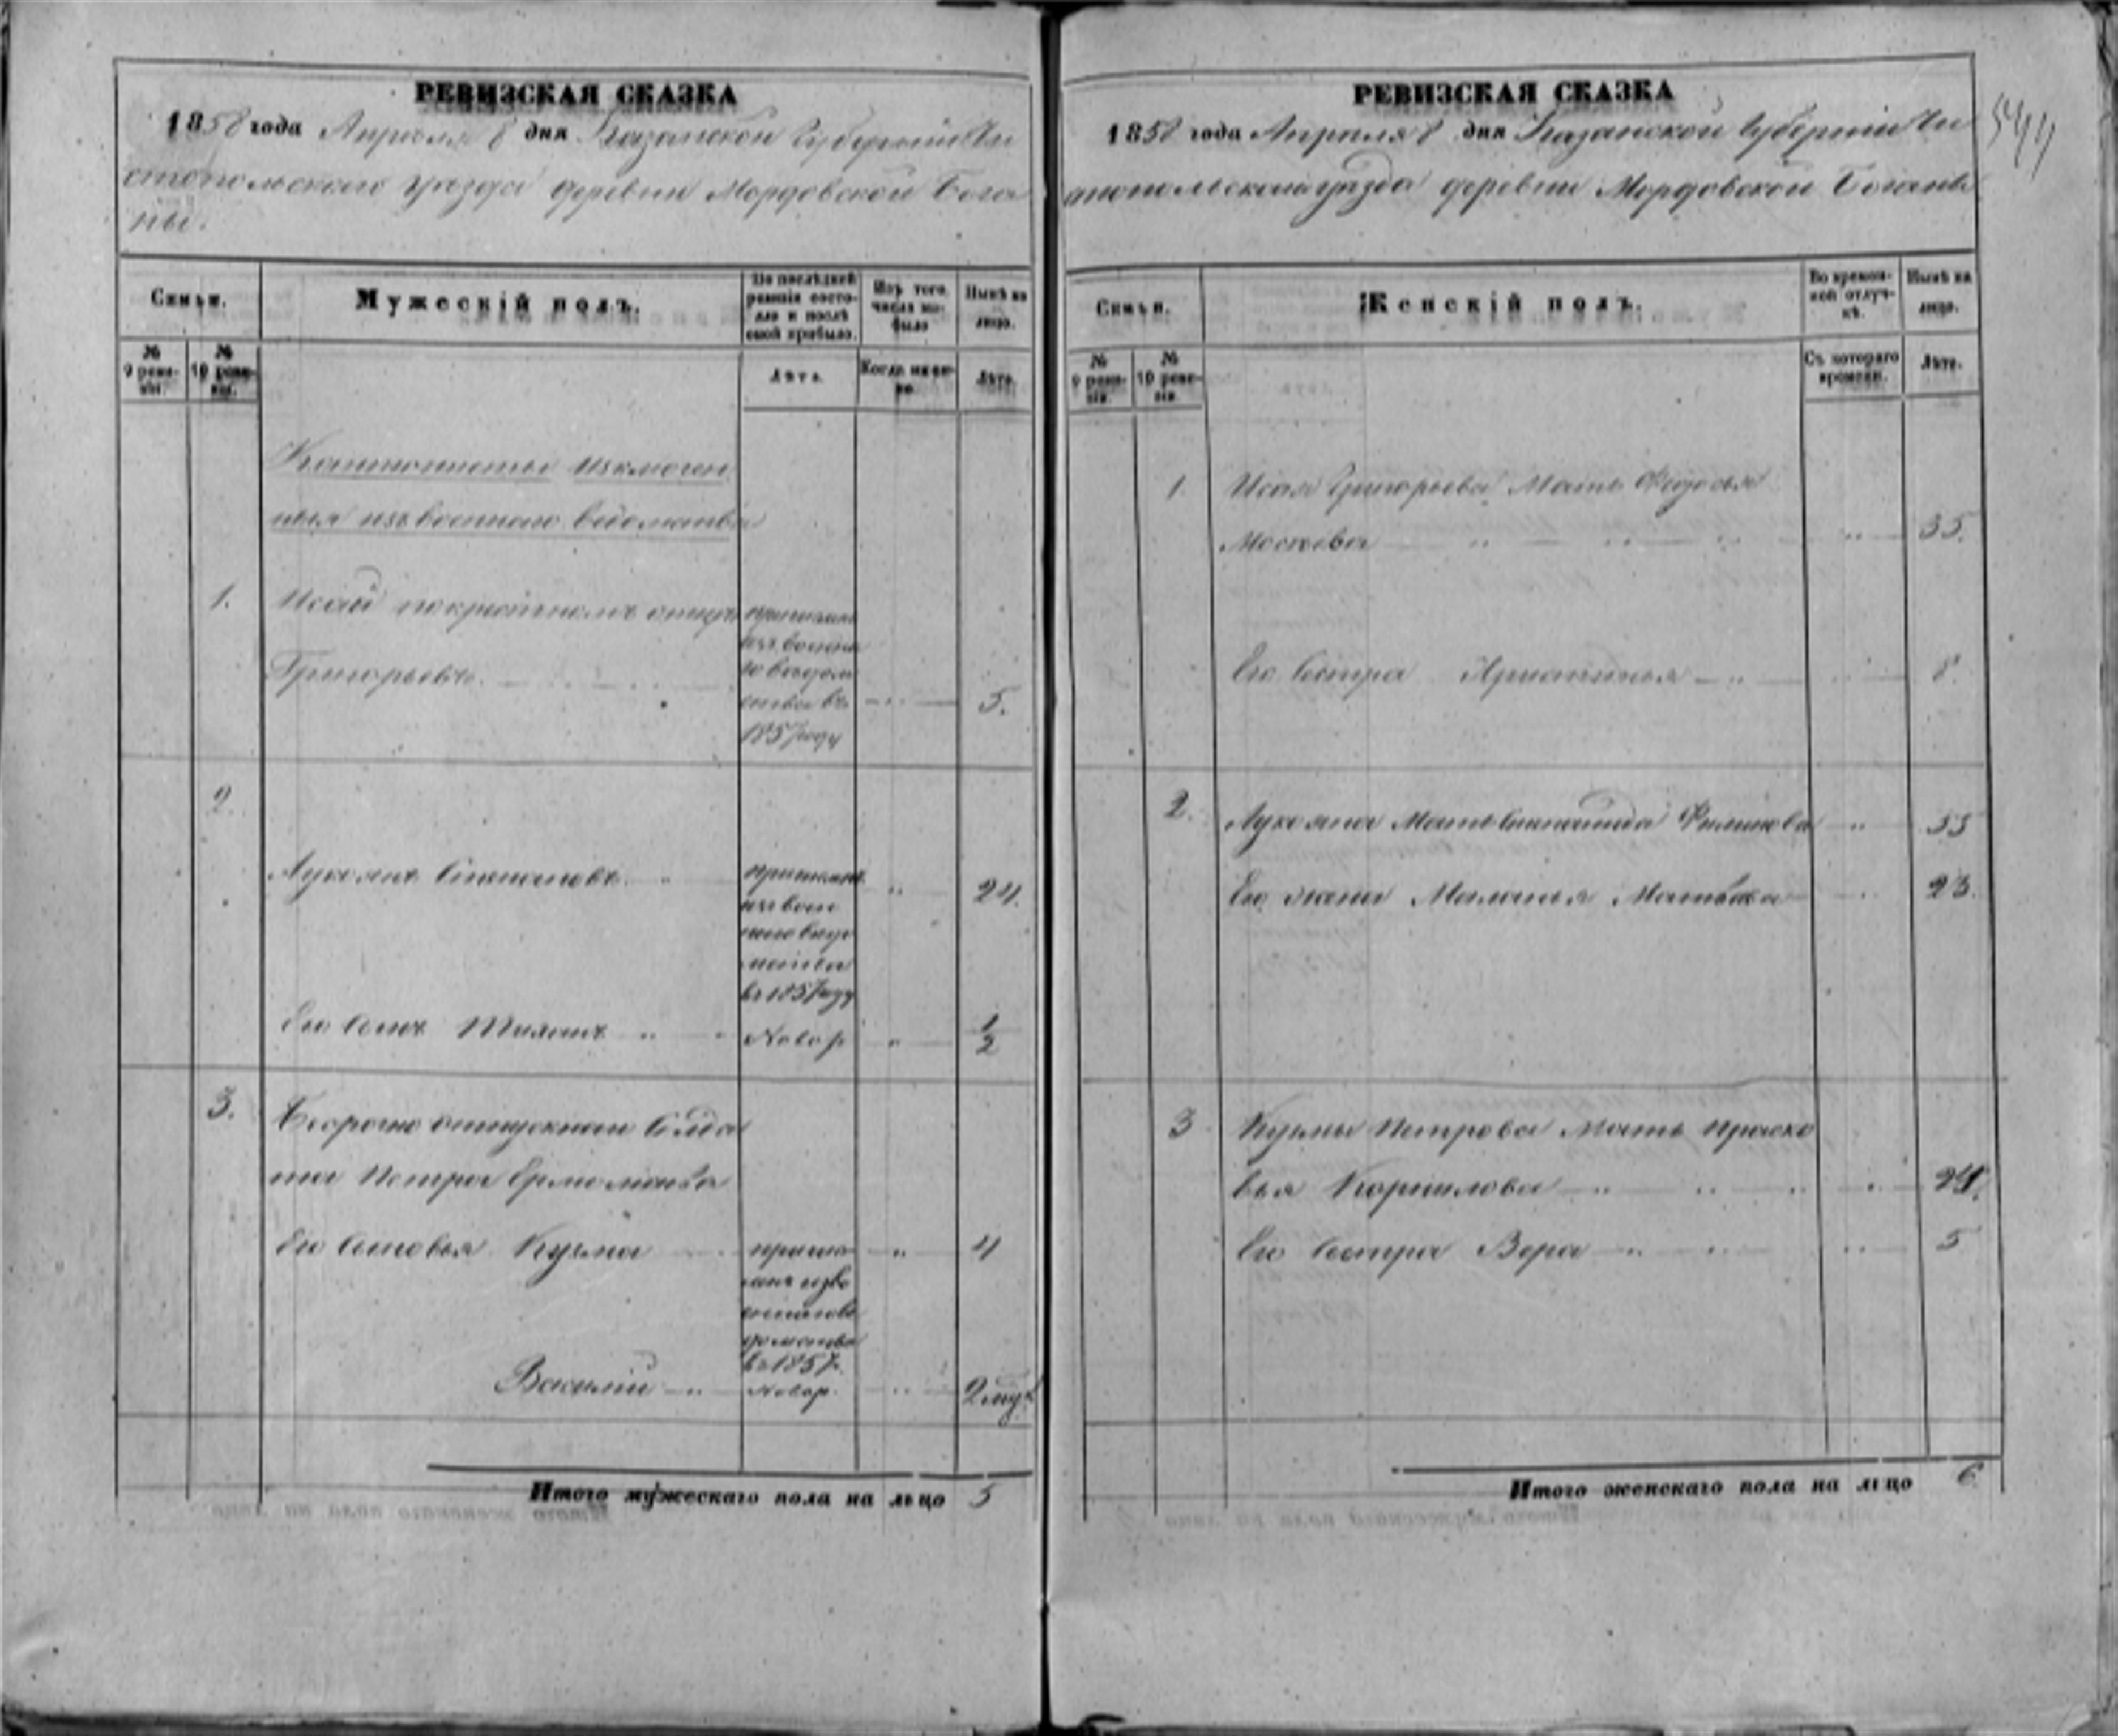 РЕВИЗСКАЯ СКАЗКА
1858 года Апреля 8 дня Казанской Губернии Чи
стопольского уезда деревни Мордовской Бога
ны.
Семьи.
Мужескій полъ.
По послѣдней ревизіи состояло и послѣ оной прибыло.
Изъ того числа выбыло
Нынѣ на лицо.
№ 9 ревизіи.
№ 10 ревизіи.
Лѣта.
Когда именно.
Лѣта.
Кантонисты исключен
ныя изъ военного ведомства
1. Исай по крестномъ отцѣ
Григорьевъ.
причислен
изъ военна
го ведом
ства въ
1857 году
5.
2.
Лукоянъ Степановъ
причисленъ
изъ воен
ного ведо
мства
въ 1857 году
24.
Его сынъ Тихонъ Новор. 1/2
3. Безсрочно отпускнаго Солда
та Петра Ермолаева
Его сыновья Кузма
причис
ленъ изъ во
енного ве
домства
въ 1857.
4
Василій Новор. 2 мѣс.
Итого мужескаго пола на лицо 5
РЕВИЗСКАЯ СКАЗКА
1858 года Апреля 8 дня Казанской Губернии Чи
стопольского уезда деревни Мордовской Боганы
Семьи.
Женскій полъ.
Во временной отлучкѣ.
Нынѣ на лицо.
№ 9 ревизіи.
№ 10 ревизіи.
Съ котораго времени.
Лѣта.
1. Исая Григорьева Мать Федосья
Мосеева 35.
Его сестра 8.
2. Лукояна Мать Степанида Филипова 55
Его жена Маланья Матвеева 23.
3 Кузмы Петрова Мать Праско
вья Корнилова
Его сестра Вера 5
Итого женскаго пола на лицо 6
544